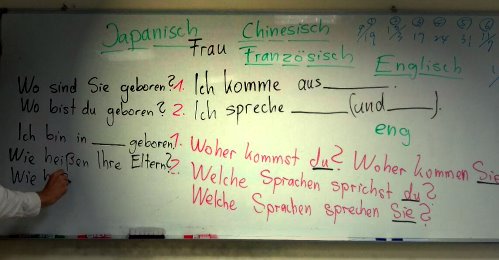 Japanisch Chinesisch
Frau Französisch Englisch
Wo sind Sie geboren? 1. Ich komme aus ______.
Wo bist du geboren? 2. Ich spreche ______ (und ____).
eng
Ich bin in ____ geboren. 1. Woher kommst du? Woher kommen Sie
Wie heißen Ihre Eltern? 2. Welche Sprachen sprichst du?
Wie h
Welche Sprachen sprechen Sie?